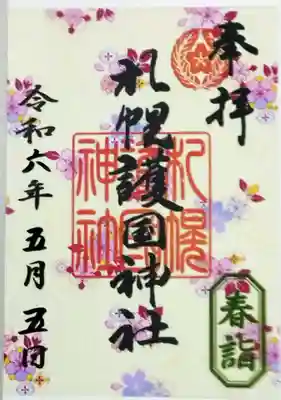 奉拝
札幌護国神社
札幌護国神社
春詣
令和六年五月五日